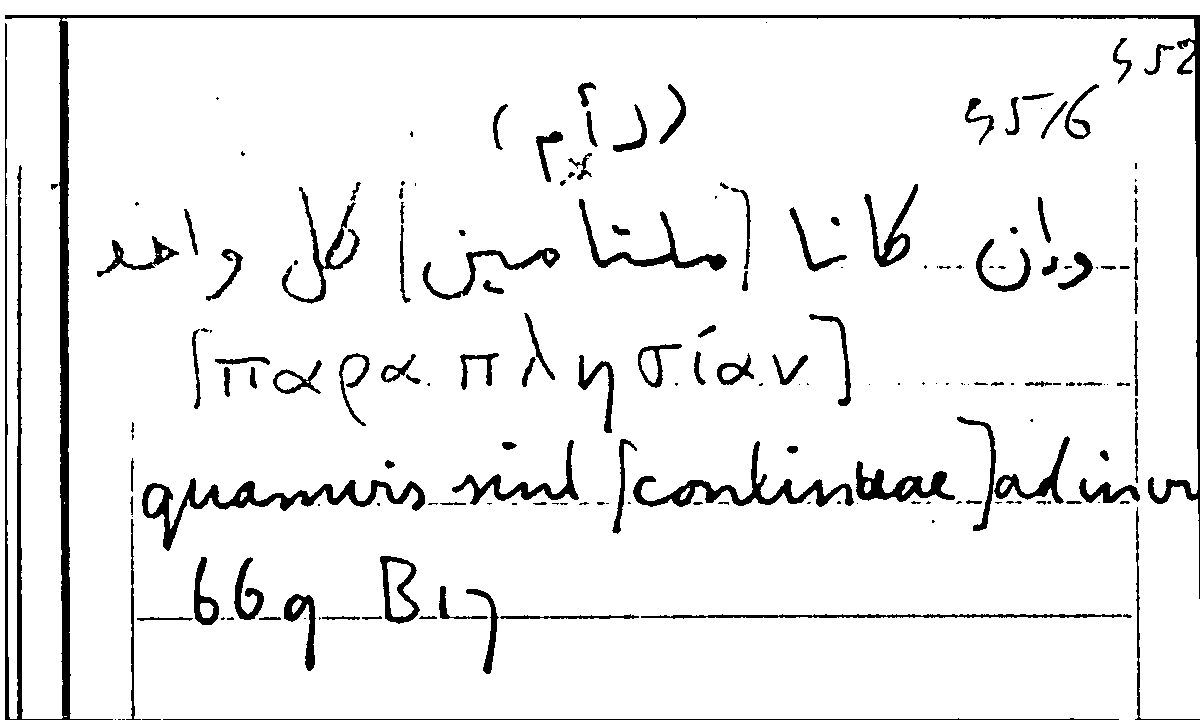 452
(لأم) 4516
وان كانا [ملتامين] كل واحد
[παραπλησίαν]
quamvis sint [continuae] ad inv
669 B 17